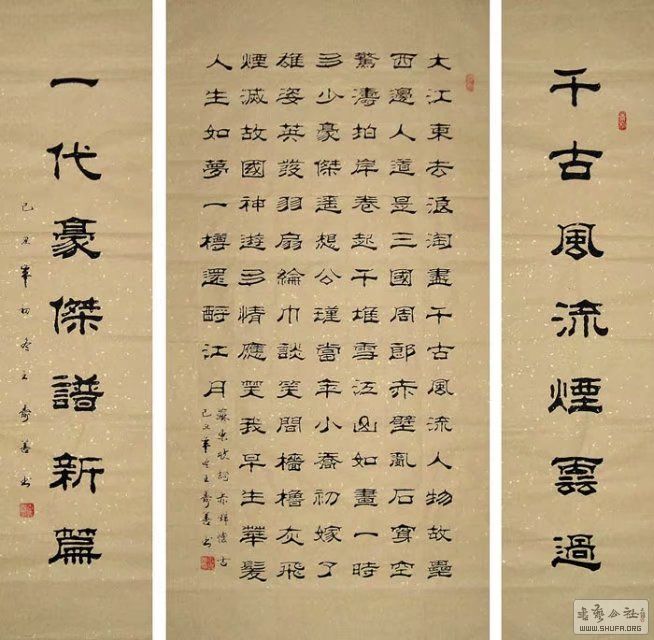 千古風流煙雲過
大江東去浪淘盡千古風流人物故壘
西邊人道是三國周郎赤壁亂石穿空
驚濤拍岸卷起千堆雪江山如畫一時
多少豪傑遙想公瑾當年小喬初嫁了
雄姿英發羽扇綸巾談笑間檣櫓灰飛
煙滅故國神遊多情應笑我早生華髮
人生如夢一樽還酹江月
蘇東坡詞赤壁懷古
己丑年王壽善书
一代豪傑譜新篇
己丑年初冬王壽善书
WWW.SHUFA.ORG